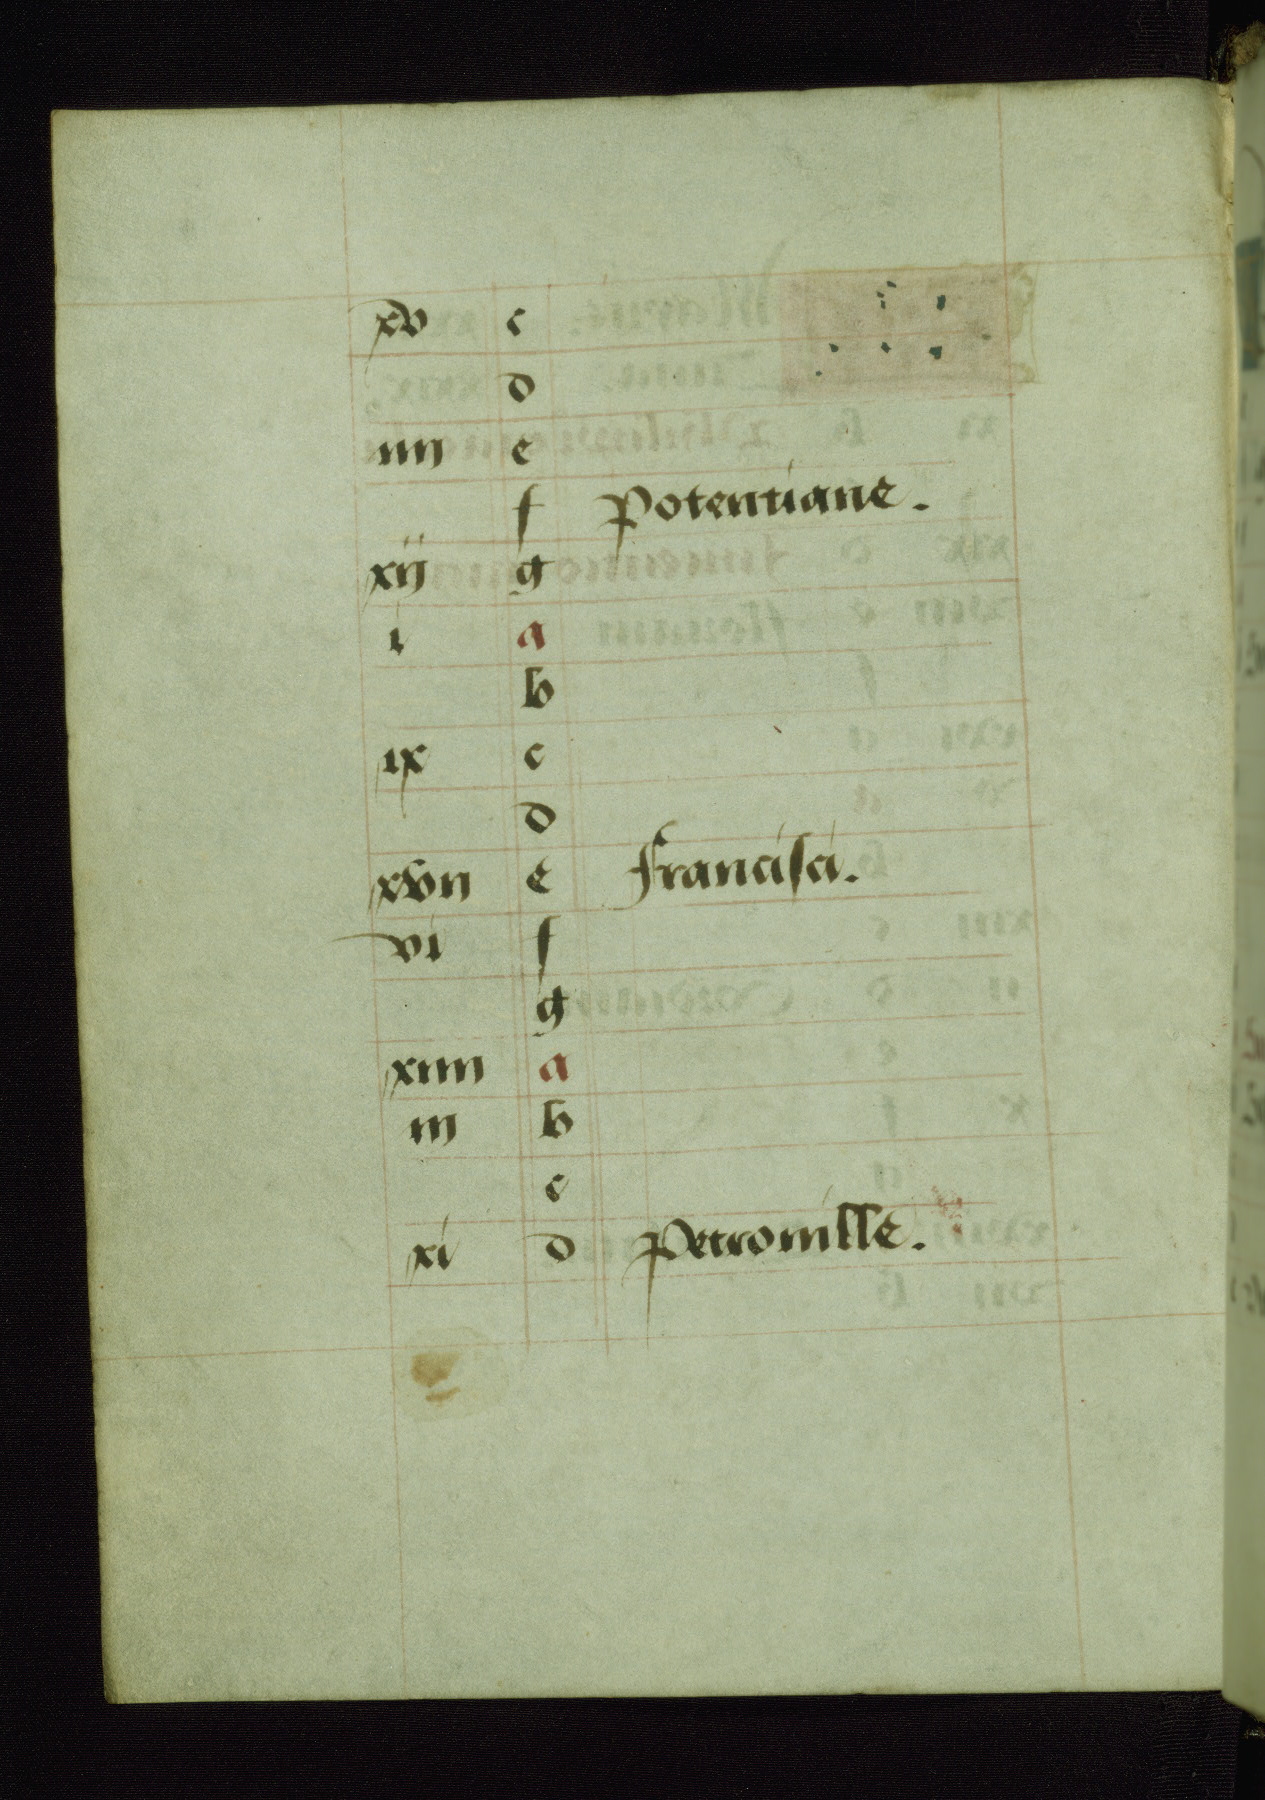 xv c
d
iiij e
f Potentiane.
xij g
i a
b
ix c
d
xvii e Francisci.
vi f
g
xiiii a
iii b
c
xi d Petronille.